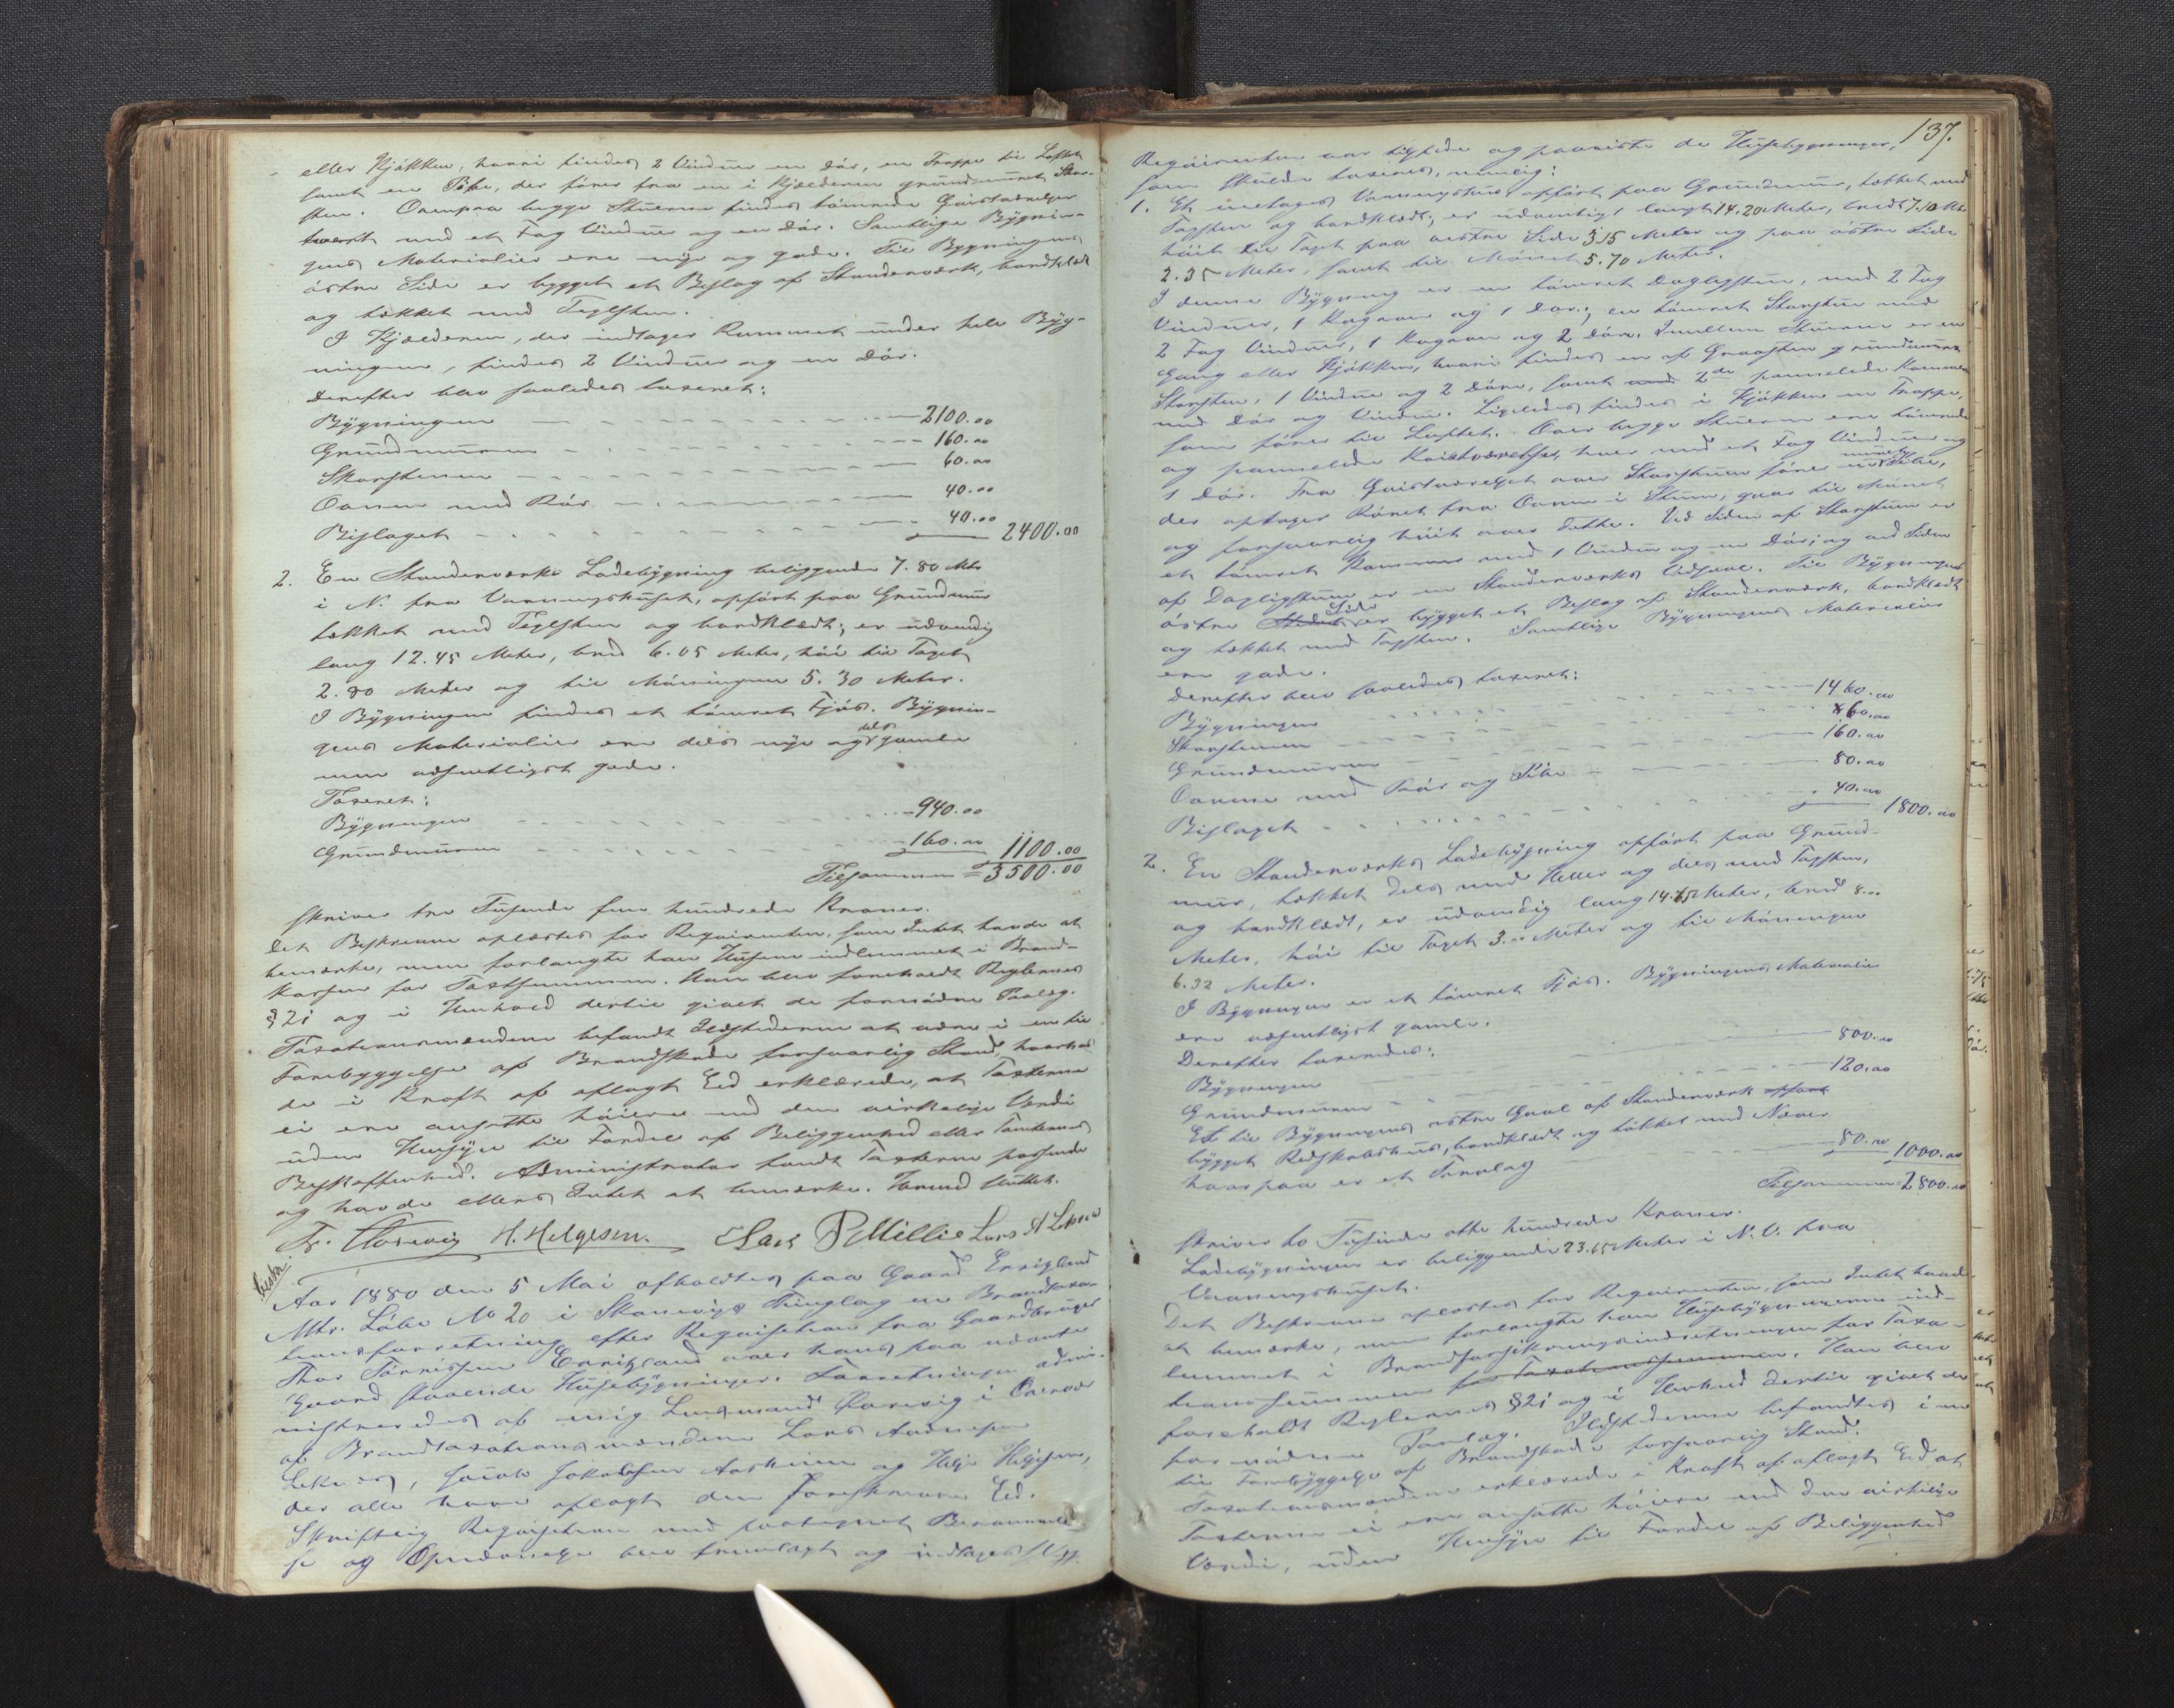 eller Kjøkken, hvori findes 2 Vinduer en Dør, en Trappe til Loftet
samt en Pibe, der fører fra en i Kjælderen grundmuret Skor-
sten. Ovenpaa begge Stuerne findes tømrede Qvistværelser
hvert med et Fag Vinduer og en Dør. Samtlige Bygnin-
gens Materialier ere nye og gode. Til Bygningens
østre Side er bygget et Bislag af Standerværk, bordklædt
og tækket med Teglsten.
I Kjælderen, der indtager Rummet under hele Byg-
ningen, findes 2 Vinduer og en Dør.
Derefter blev saaledes taxeret:
Bygningen 2100.00
Grundmuren 160.00
Skorstenen 60.00
Ovnen med Rør 40.00
Bislaget 40.00 2400.00
2. En Standerværks Ladebygning beliggende 7.80 Mtr
i N. fra Vaaningshuset, opført paa Grundmur
tækket med Teglsten og bordklædt; er udvendig
lang 12.45 Meter, bred 6.05 Meter, høi til Taget
2.80 Meter og til Møningen 5.30 Meter.
I Bygningen findes et tømret Fjøs. Bygnin-
gens Materialier ere dels nye og dels gamle
men væsentligst gode.
Taxeret:
Bygningen 940.00
Grundmuren 160.00 1100.00
Tilsammen = 3500.00
skriver tre Tusende fem hundrede Kroner.
Det Beskrevne oplæstes for Reqvirenten, som Intet havde at
bemærke, men forlangte han Husene indlemmet i Brand-
kassen for Taxtsummen. Han blev foreholdt Reglernes
§21 og i Henhold dertil givet de fornødne Paalæg.
Taxationsmændene befandt Ildstederne at være i en til
Forebyggelse af Brandskade forsvarlig Stand, hvorhos
de i Kraft af aflagt Eed erklærede, at Taxterne
ei ere ansatte høiere end den virkelige Værdi
uden Hensyn til Fordel af Beliggenhed eller Tomternes
Beskaffenhed. Administrator fandt Taxterne passende
og havde ellers Intet at bemærke. Hermed sluttet.
H. Helgesen. Lars P Millie Lars A Leknes
Aar 1880 den 5 Mai afholdtes paa Gaard
Mtr. Løbe No 20 i Skonevigs Thinglag en Brandtaxa-
tionsforretning efter Reqvisition fra Gaardbruger
Thor Tørrissen over hans paa nævnte
Gaard staaende Husebygninger. Forretningen admi-
nistreredes af mig Lensmand i
af Brandtaxationsmændene Lars Aadnesen
Leknes, Jacob Jakobsen og Helge Helgesen,
der alle have aflagt den foreskrevne Eed.
Skriftlig Reqvisition med paategnet Berammel-
se og Opnævnelse blev fremlagt og indtages
137.
Reqvirenten var tilstede og paaviste de Husebygninger,
som skulde taxeres, nemlig:
1. Et enetages Vaaningshus opført paa Grundmur, tækket med
Tagsten og bordklædt; er udvendigt langt 14.20 Meter, bredt 7.10 Mtr
høit til Taget paa vestre Side 3.15 Meter og paa østre Side
2.35 Meter, samt til Mønet 5.70 Meter.
I denne Bygning er en tømret Dagligstue, med 2 Fag
Vinduer, 1 Kogovn og 1 Dør; en tømret Skorstue med
2 Fag Vinduer, 1 Kogovn og 2 Døre. Imellem Stuerne er en
Gang eller Kjøkken, hvori findes en af Graasten grundmuret
Skorsten, 1 Vindue og 2 Døre, samt 2de pannelede Kammere
med Dør og Vindue. Ligeledes findes i Kjøkken en Trappe,
som fører til Loftet. Over begge Stuerne ere tømrede
og pannelede Kvistværelser, hver med et Fag Vinduer og
1 Dør. Fra Qvistværelset over Skorstuen fører en muret Pibe,
der optager Røret fra Ovnen i Stuen, gaar til Mønet
og forsvarlig høit over dette. Ved Siden af Skorstuen er
et tømret Kammer med 1 Vindue og en Dør; og ved Siden
af Dagligstuen er en Standerværks Udsval. Til Bygningens
østre Side er bygget et Bislag af Standerværk, bordklædt
og tækket med Tagsten. Samtlige Bygningens Materialier
ere gode.
Derefter blev saaledes taxeret:
Bygningen 1460.00
Skorstenen 60.00
Grundmuren 160.00
Ovnene med Rør og Pibe 80.00
Bislaget 40.00 1800.00
2. En Standerværks Ladebygning opført paa Grund-
mur, tækket dels med Heller og dels med Tagsten,
og bordklædt, er udvendig lang 14.65 Meter, bred 8.00
Meter, høi til Taget 3.00 Meter og til Møningen
6.32 Meter.
I Bygningen er et tømret Fjøs. Bygningens Materialier
ere væsentligst gamle.
Derefter taxeredes:
Bygningen 800.00
Grundmuren 120.00
Et til Bygningens østre Gavl af Standerværk opført
bygget Redskabshus, bordklædt og tækket med Næver
hvorpaa er et Torvlag 80.00 1000.00
Tilsammen = 2800.00
skriver to Tusinde otte hundrede Kroner.
Ladebygningen er beliggende 23.65 Meter i N.V. fra
Vaaningshuset.
Det Beskrevne oplæstes for Reqvirenten, som Intet havde
at bemærke, men forlangte han Husebygningerne ind-
lemmet i Brandforsikringsindretningen for Taxa-
tionssummen for Taxationssummen. Han blev
foreholdt Reglernes §21 og i Henhold dertil givet de
fornødne Paalæg. Ildstederne befandtes i en
til Forebyggelse af Brandskade forsvarlig Stand.
Taxationsmændene erklærede i Kraft af aflagt Eed at
Taxterne ei ere ansatte høiere end den virkelige
Værdi, uden Hensyn til Fordel af Beliggenhed